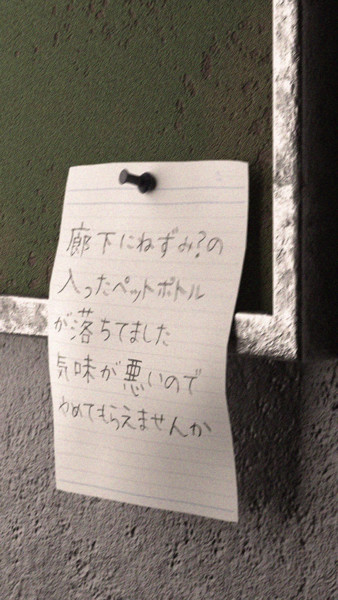 廊下にねずみ?の
入ったペットボトル
が落ちてました
気味が悪いので
やめてもらえませんか